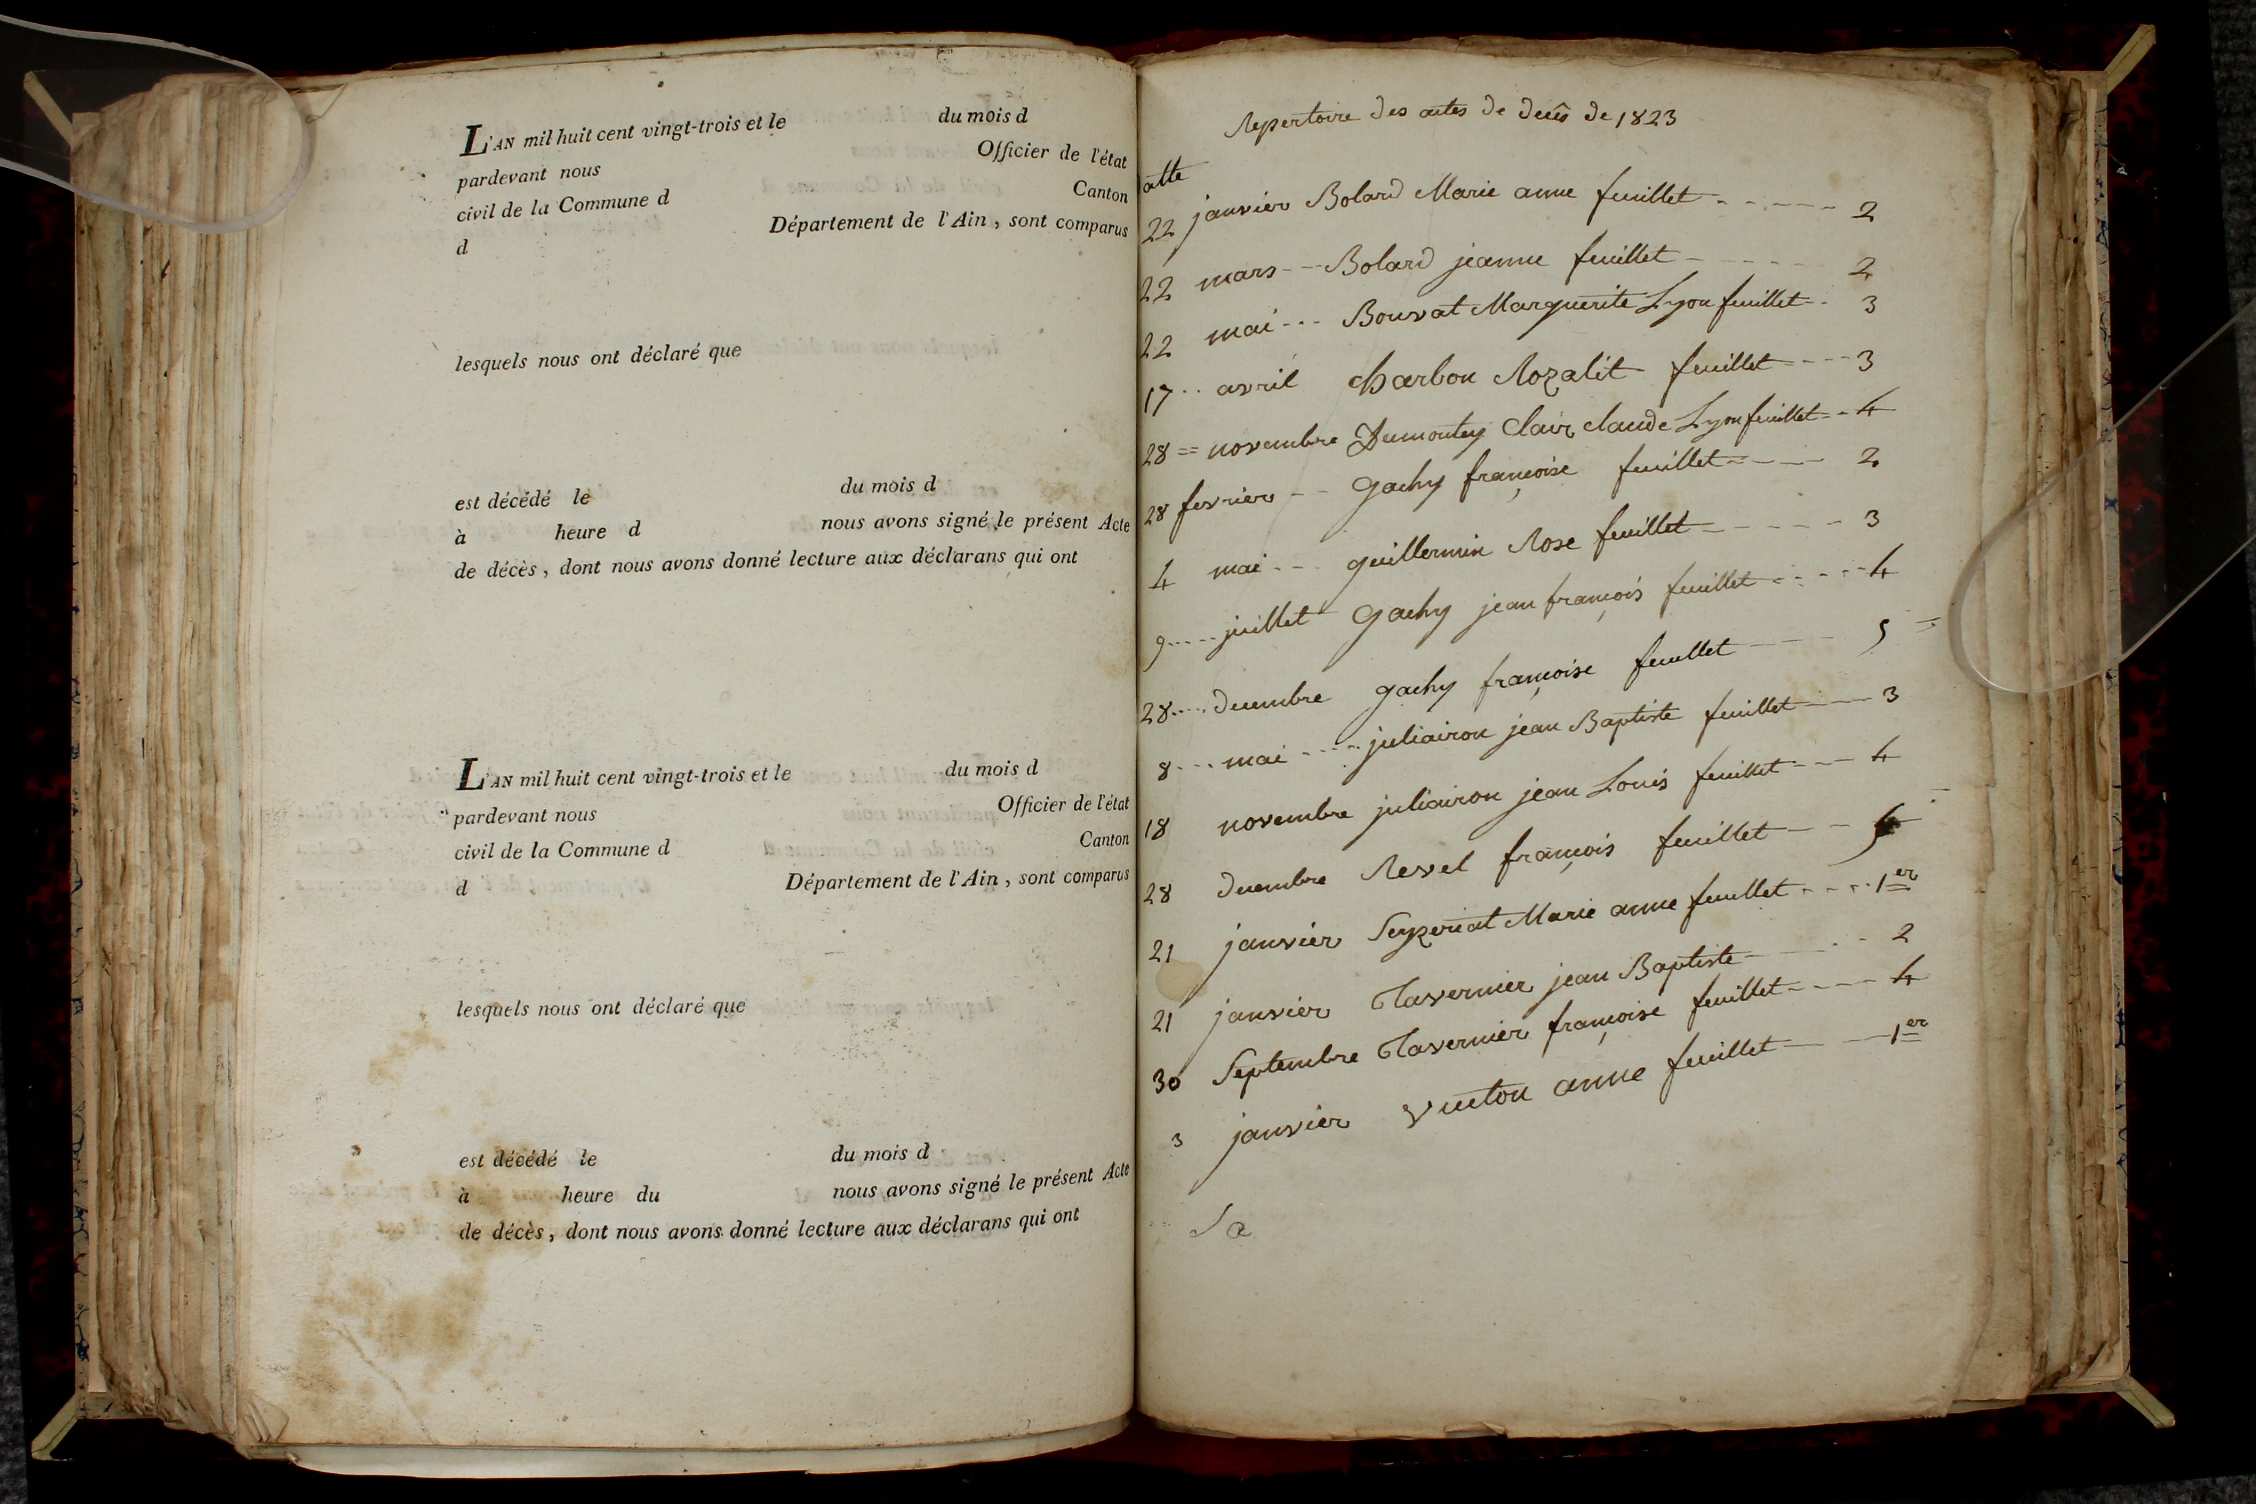 L'AN mil huit cent vingt-trois et le du mois d
pardevant nous Officier de l'état
civil de la Commune d Canton
d Département de l'Ain, sont comparus
lesquels nous ont déclaré que
est décédé le du mois d
à heure d nous avons signé le présent Acte
de décès, dont nous avons donné lecture aux déclarans qui ont
L'AN mil huit cent vingt-trois et le du mois d
pardevant nous Officier de l'état
civil de la Commune d Canton
d Département de l'Ain, sont comparus
lesquels nous ont déclaré que
est décédé le du mois d
à heure du nous avons signé le présent Acte
de décès, dont nous avons donné lecture aux déclarans qui ont
Repertoire des actes de decès de 1823
22 janvier Bolard Marie anne feuillet - - - - - 2
22 mars - - Bolard jeanne feuillet - - - - - 2
22 mai - - - Bouvat Marguerite Lyon feuillet - 3
17 - - avril Charbon Rozalit feuillet - - - - 3
28 = novembre Dumontey Clair claude Lyon feuillet - - 4
28 fevrier - - gachy françoise feuillet - - - - 2
4 mai - - - guillermin Rose feuillet - - - - - 3
9 - - - - juillet gachy jean françois feuillet - - - - - 4
28 - - - - decembre gachy françoise feuillet - - - 5
8 - - - mai - - - - juliairon jean Baptiste feuillet - - - 3
18 novembre juliairon jean Louis feuillet - - - 4
28 decembre Revel françois feuillet - - - 5
21 janvier Seyzeriat Marie anne feuillet - - - - 1er
21 janvier Tavernier jean Baptiste - - - - - 2
30 Septembre Tavernier françoise feuillet - - - - 4
3 janvier Vuiton anne feuillet - - - 1er